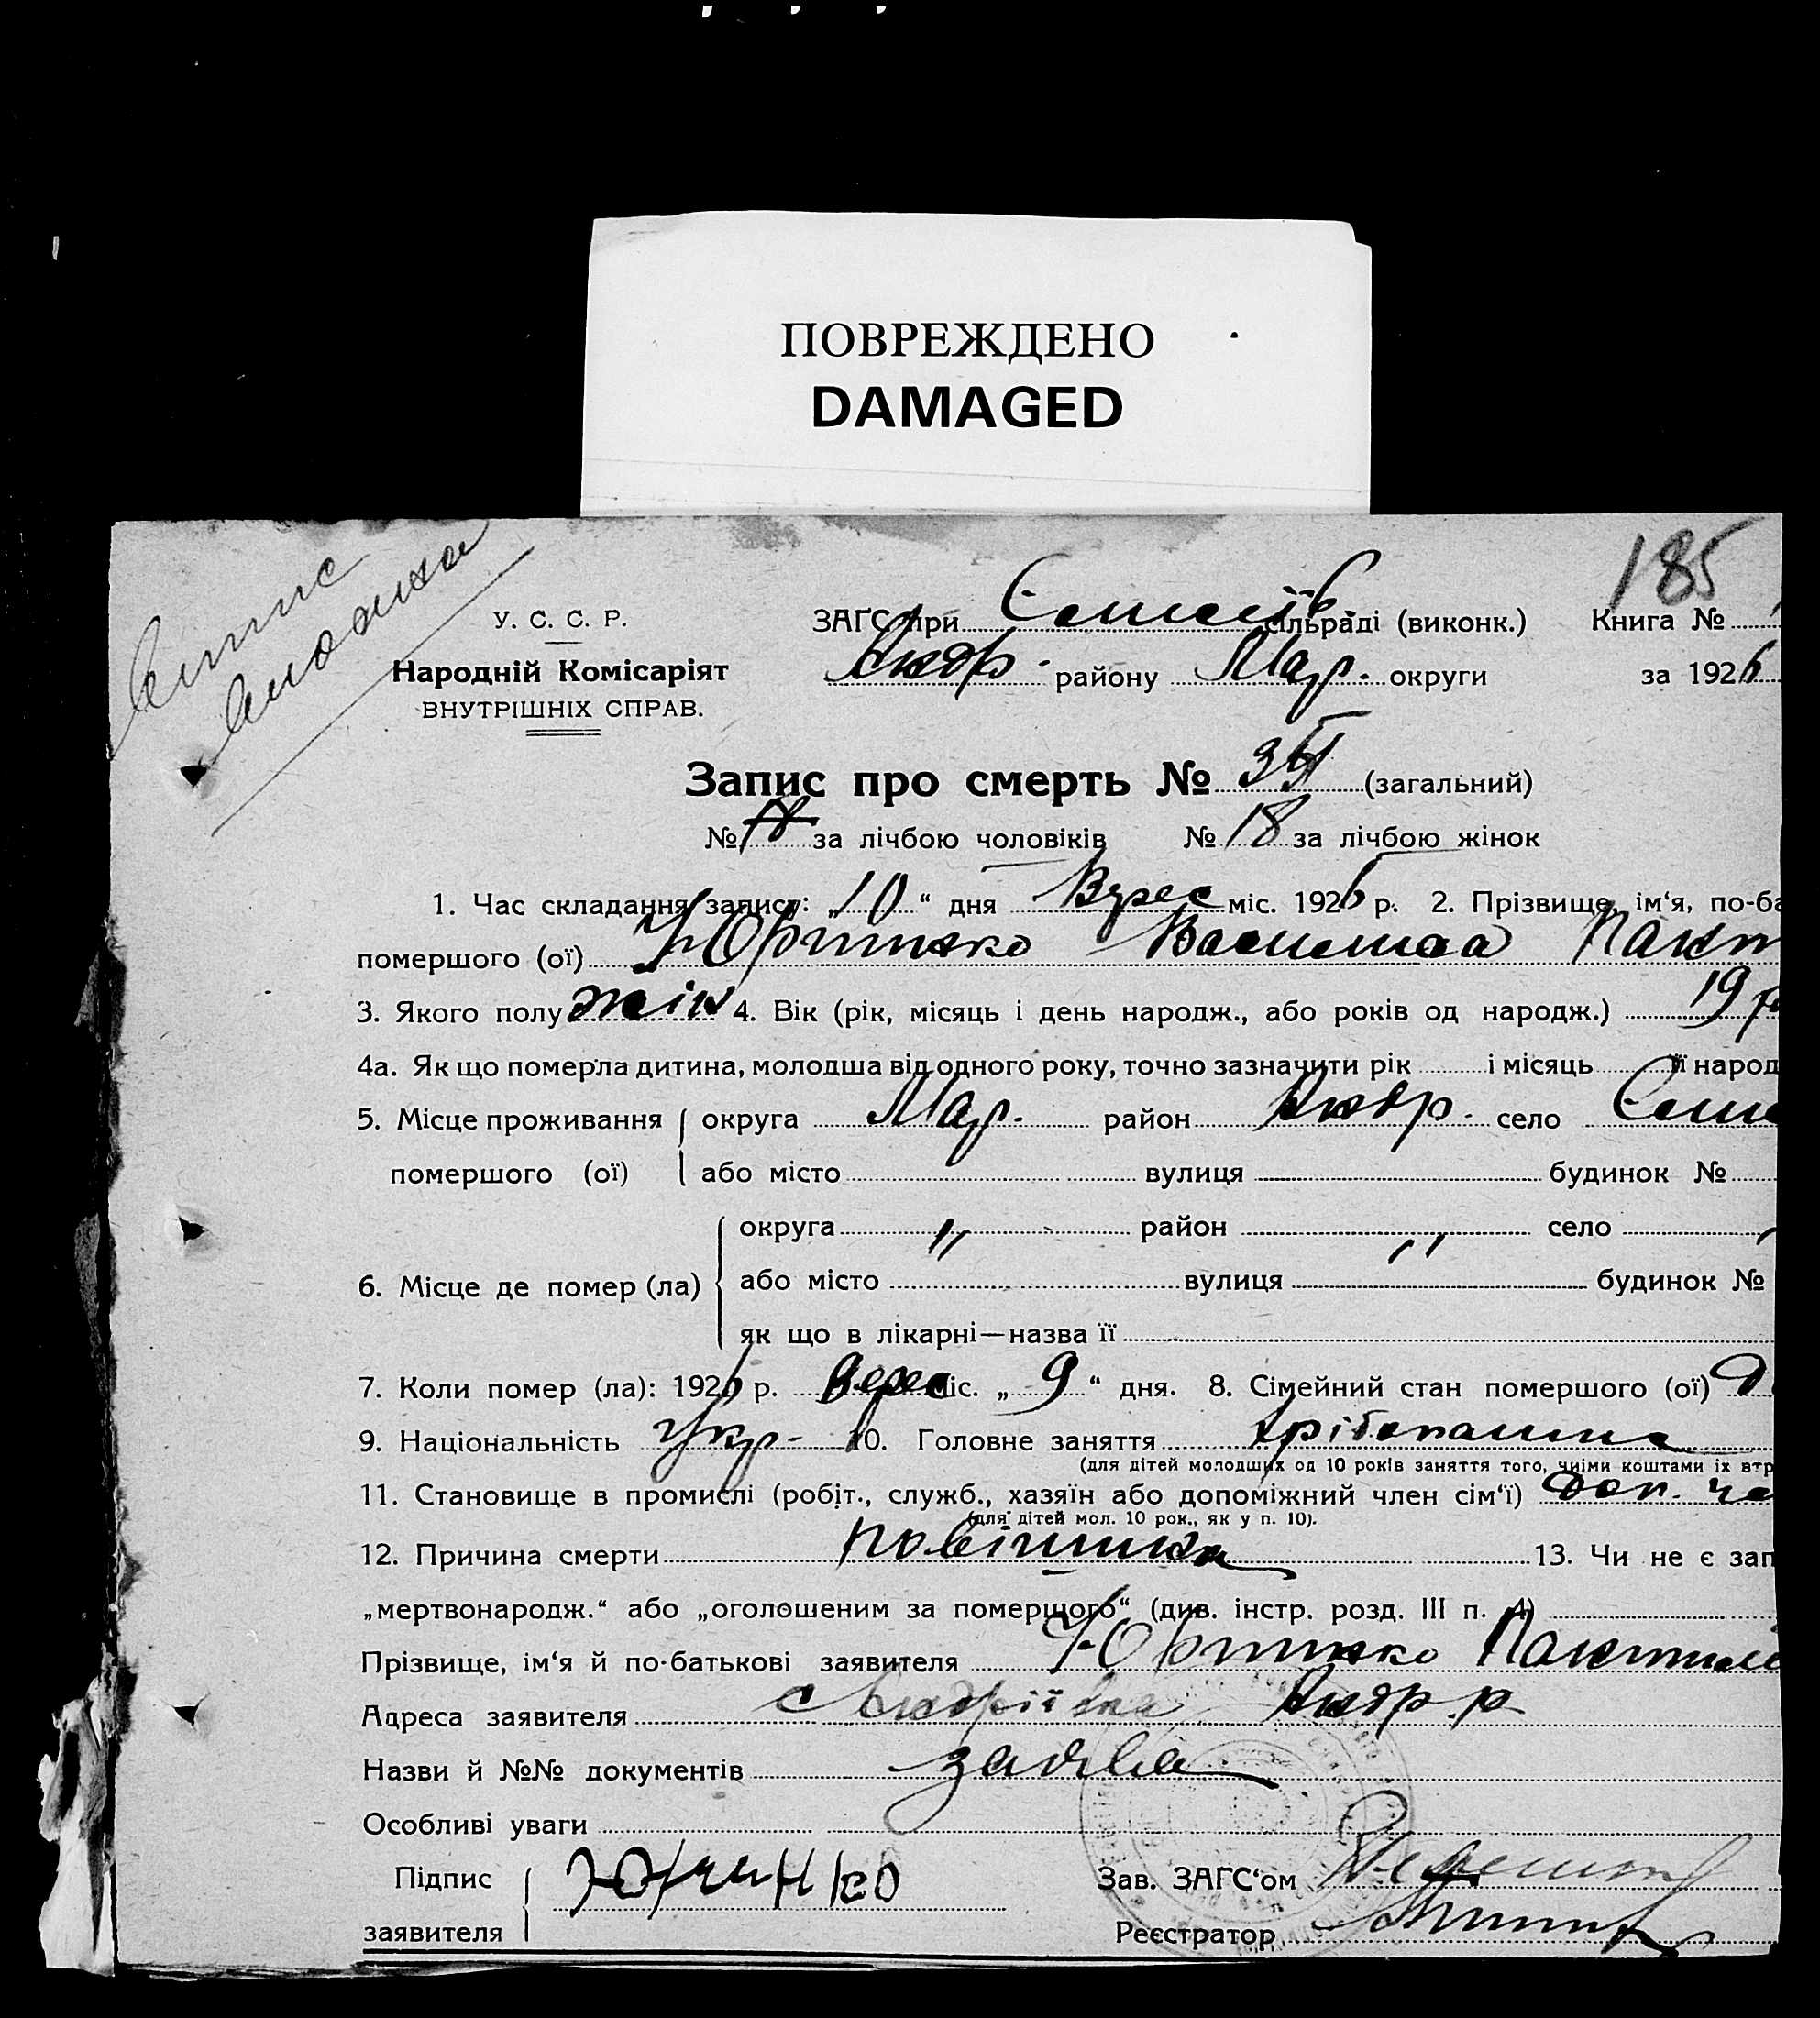 ПОВРЕЖДЕНО
DAMAGED
185
У. С. С. Р.
ЗАГС при сільраді (виконк.) Книга №
Народній Комісаріят
Андр. району Мар. округи за 1926
ВНУТРІШНІХ СПРАВ.
Запис про смерть № (загальний)
№ за лічбою чоловіків № 18 за лічбою жінок
1. Час складання запису: „10“ дня Верес міс. 1926 р. 2. Прізвище, ім'я, по-ба
помершого (ої) Юрченко Василиса
3. Якого полу жін 4. Вік (рік, місяць і день народж., або років од народж.) 19 р
4а. Як що померла дитина, молодша від одного року, точно зазначити рік і місяць її народ
5. Місце проживання округа Мар. район Андр. село
помершого (ої) або місто вулиця будинок №
округа " район " село
6. Місце де помер (ла) або місто вулиця будинок №
як що в лікарні—назва її
7. Коли помер (ла): 1926 р. Верес міс. „9“ дня. 8. Сімейний стан помершого (ої)
9. Національність Укр. 10. Головне заняття хрібопашне
(для дітей молодших од 10 років заняття того, чиїми коштами їх втр
11. Становище в промислі (робіт., служб., хазяїн або допоміжний член сім'ї) Доп. че
(для дітей мол. 10 рок., як у п. 10).
12. Причина смерти 13. Чи не є зап
„мертвонародж.“ або „оголошеним за померщого“ (див. інстр. розд. III п. 4)
Прізвище, ім'я й по-батькові заявителя Юрченко
Адреса заявителя с Андріївка Андр. р
Назви й №№ документів заява
Особливі уваги
Підпис Юрченко Зав. ЗАГС'ом
заявителя Реєстратор